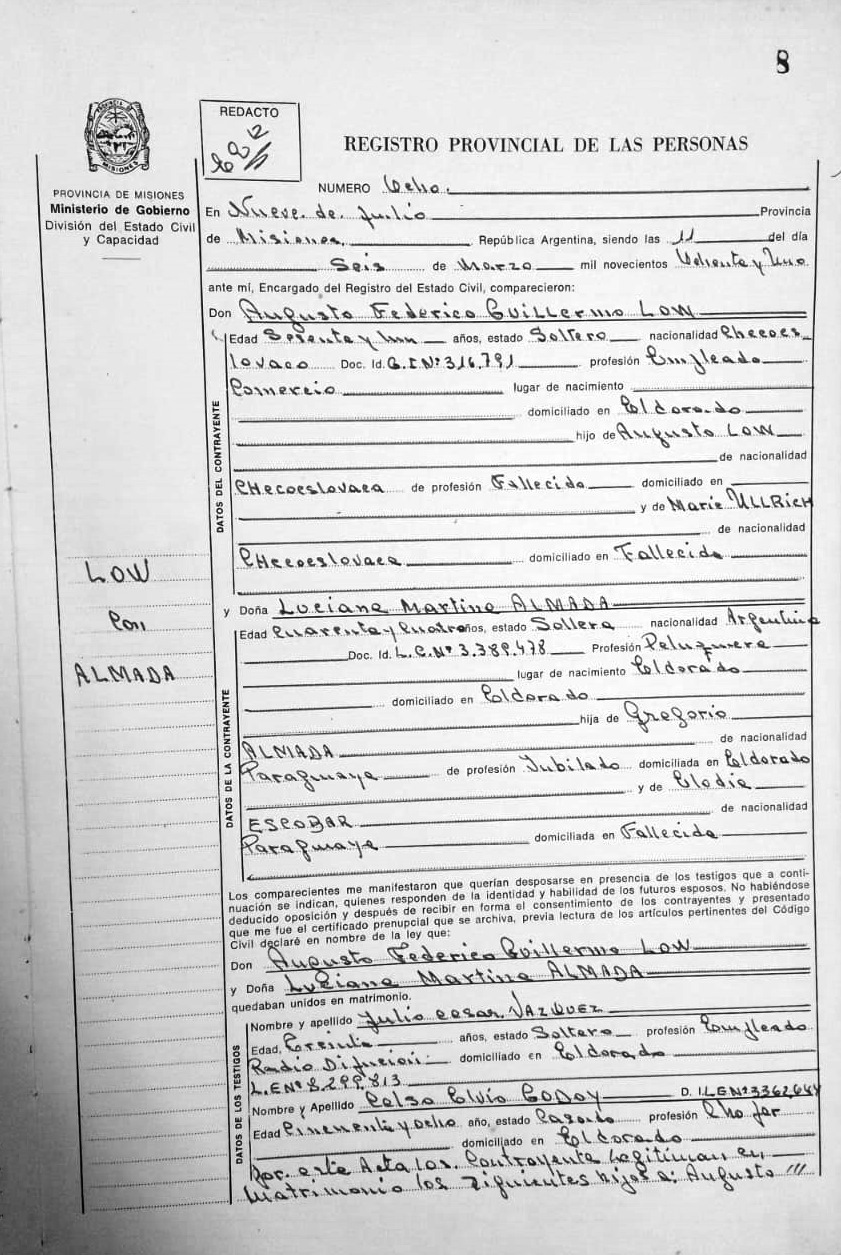 8
PROVINCIA DE
MISIONES
REDACTO
REGISTRO PROVINCIAL DE LAS PERSONAS
PROVINCIA DE MISIONES
Ministerio de Gobierno
División del Estado Civil
y Capacidad
NUMERO Ocho.
En Nueve de Julio Provincia
de Misiones, República Argentina, siendo las 11 del día
Seis de Marzo mil novecientos Ochenta y Uno
ante mí, Encargado del Registro del Estado Civil, comparecieron:
Don Augusto Federico Guillermo LOW
Edad Sesenta y un años, estado Soltero nacionalidad Checoes
lovaco Doc. Id. C.I Nº 316.791 profesión Empleado
Comercio lugar de nacimiento
domiciliado en Eldorado
hijo de Augusto LOW
de nacionalidad
CHecoeslovaca de profesión Fallecido domiciliado en
y de Marie ULLRICH
de nacionalidad
CHecoeslovaca domiciliado en Fallecida
DATOS DEL CONTRAYENTE
LOW
Con
ALMADA
y Doña Luciana Martina ALMADA
Edad Cuarenta y Cuatro años, estado Soltera nacionalidad Argentina
Doc. Id. L.C.Nº 3.389.478 Profesión Peluquera
lugar de nacimiento Eldorado
domiciliado en Eldorado
hija de Gregorio
ALMADA de nacionalidad
Paraguaya de profesión Jubilado domiciliada en Eldorado
y de Elodia
ESCOBAR de nacionalidad
Paraguaya domiciliada en Fallecida
DATOS DE LA CONTRAYENTE
Los comparecientes me manifestaron que querían desposarse en presencia de los testigos que a conti-
nuación se indican, quienes responden de la identidad y habilidad de los futuros esposos. No habiéndose
deducido oposición y después de recibir en forma el consentimiento de los contrayentes y presentado
que me fue el certificado prenupcial que se archiva, previa lectura de los artículos pertinentes del Código
Civil declaré en nombre de la ley que:
Don Augusto Federico Guillermo LOW
y Doña Luciana Martina ALMADA
quedaban unidos en matrimonio.
Nombre y apellido Julio Cesar VAZQUEZ
Edad, Treinta años, estado Soltero profesión Empleado
Radio Difucion domiciliado en Eldorado
L.E.Nº 8.299.813
Nombre y Apellido Celso Elvio GODOY D. I L.E Nº 3362644
Edad Cincuenta y ocho año, estado Casado profesión Chofer
domiciliado en Eldorado
DATOS DE LOS TESTIGOS
Por este Acta los Contrayente Legitiman en
Matrimonio los siguientes hijos a: Augusto ///